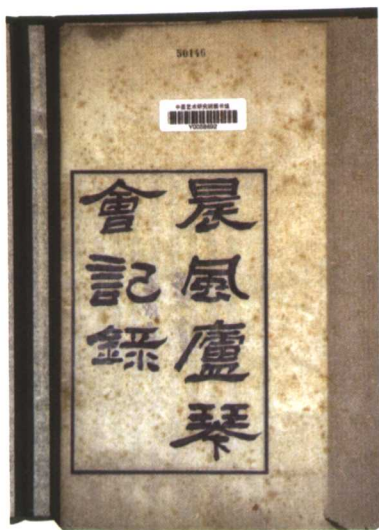 50146
中国艺术研究院图书馆
Y0059692
晨風廬琴
會記錄